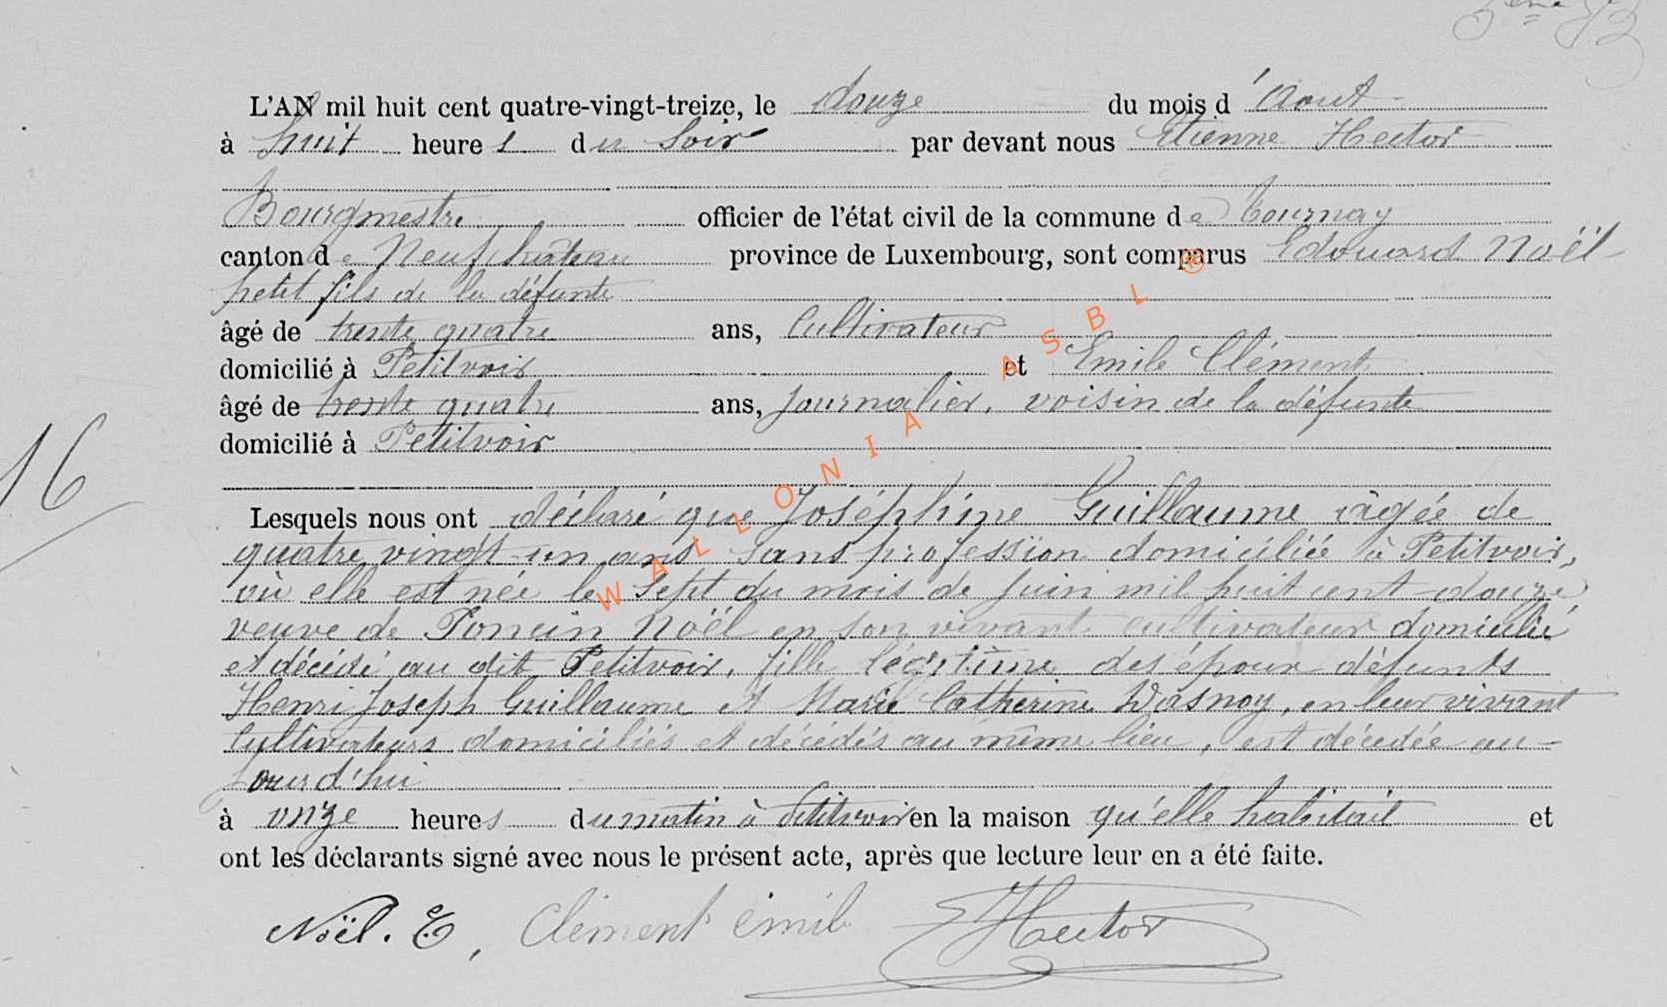 L'AN mil huit cent quatre-vingt-treize, le douze du mois d'Aout
à huit heures du Soir par devant nous Etienne Hector
Bourgmestre officier de l'état civil de la commune de Tournay
canton de Neufchâteau province de Luxembourg, sont comparus Edouard Noël
petit fils de la défunte
âgé de trente quatre ans, Cultivateur
domicilié à Petitvoir et Emile Clément
âgé de trente quatre ans, journalier, voisin de la défunte
domicilié à Petitvoir
16
Lesquels nous ont déclaré que Joséphine Guillaume âgée de
quatre vingt-un ans sans profession domiciliée à Petitvoir,
où elle est née le Sept du mois de juin mil huit cent-douze
veuve de Poncin Noël en son vivant cultivateur domicilié
et décédé au dit Petitvoir, fille légitime des époux défunts
Henri Joseph Guillaume et Marie Catherine Wasnoy, en leur vivant
Cultivateurs domiciliés et décédés au même lieu, est décédée au-
jourd'hui
à onze heures du matin à Petitvoir en la maison qu'elle habitait et
ont les déclarants signé avec nous le présent acte, après que lecture leur en a été faite.
Noël. E, Clément émil EHector
WALLONIA ASBL ®